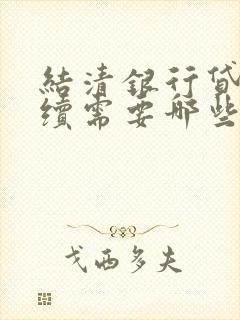 結清銀行貸
續需要哪些
戈西多夫